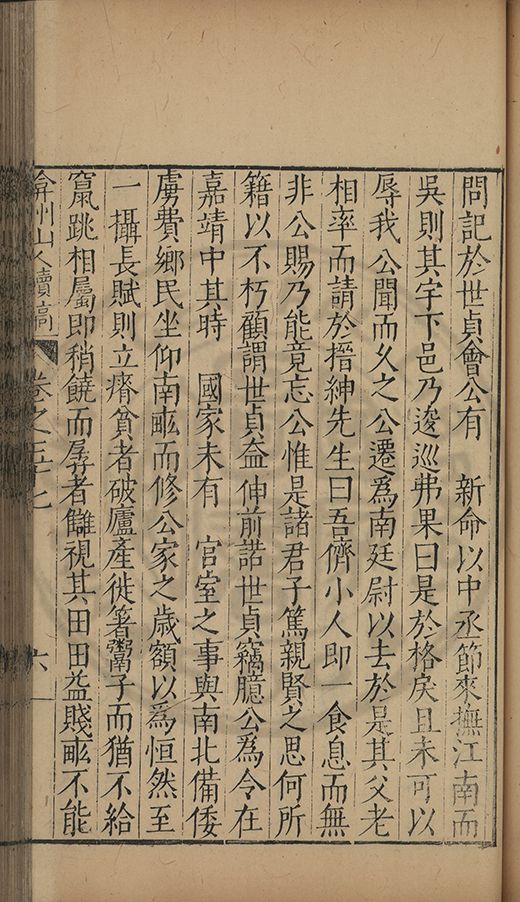 問記於世貞會公有　新命以中丞節來撫江南而
吳則其宇下邑乃逡巡弗果曰是於格戾且未可以
辱我公聞而久之公遷爲南廷尉以去於是其父老
相率而請於搢紳先生曰吾儕小人即一食息而無
非公賜乃能竟忘公惟是諸君子篤親賢之思何所
籍以不朽顧謂世貞益伸前諾世貞竊臆公爲令在
嘉靖中其時　國家未有　宫室之事與南北備倭
虜費鄉民坐仰南畝而修公家之歲額以爲恒然至
一攝長賦則立瘠貧者破廬產徙箸鬻子而猶不給
竄跳相屬即稍饒而孱者讎視其田田益賤畝不能
弇州山人續稿　卷之五十七　六